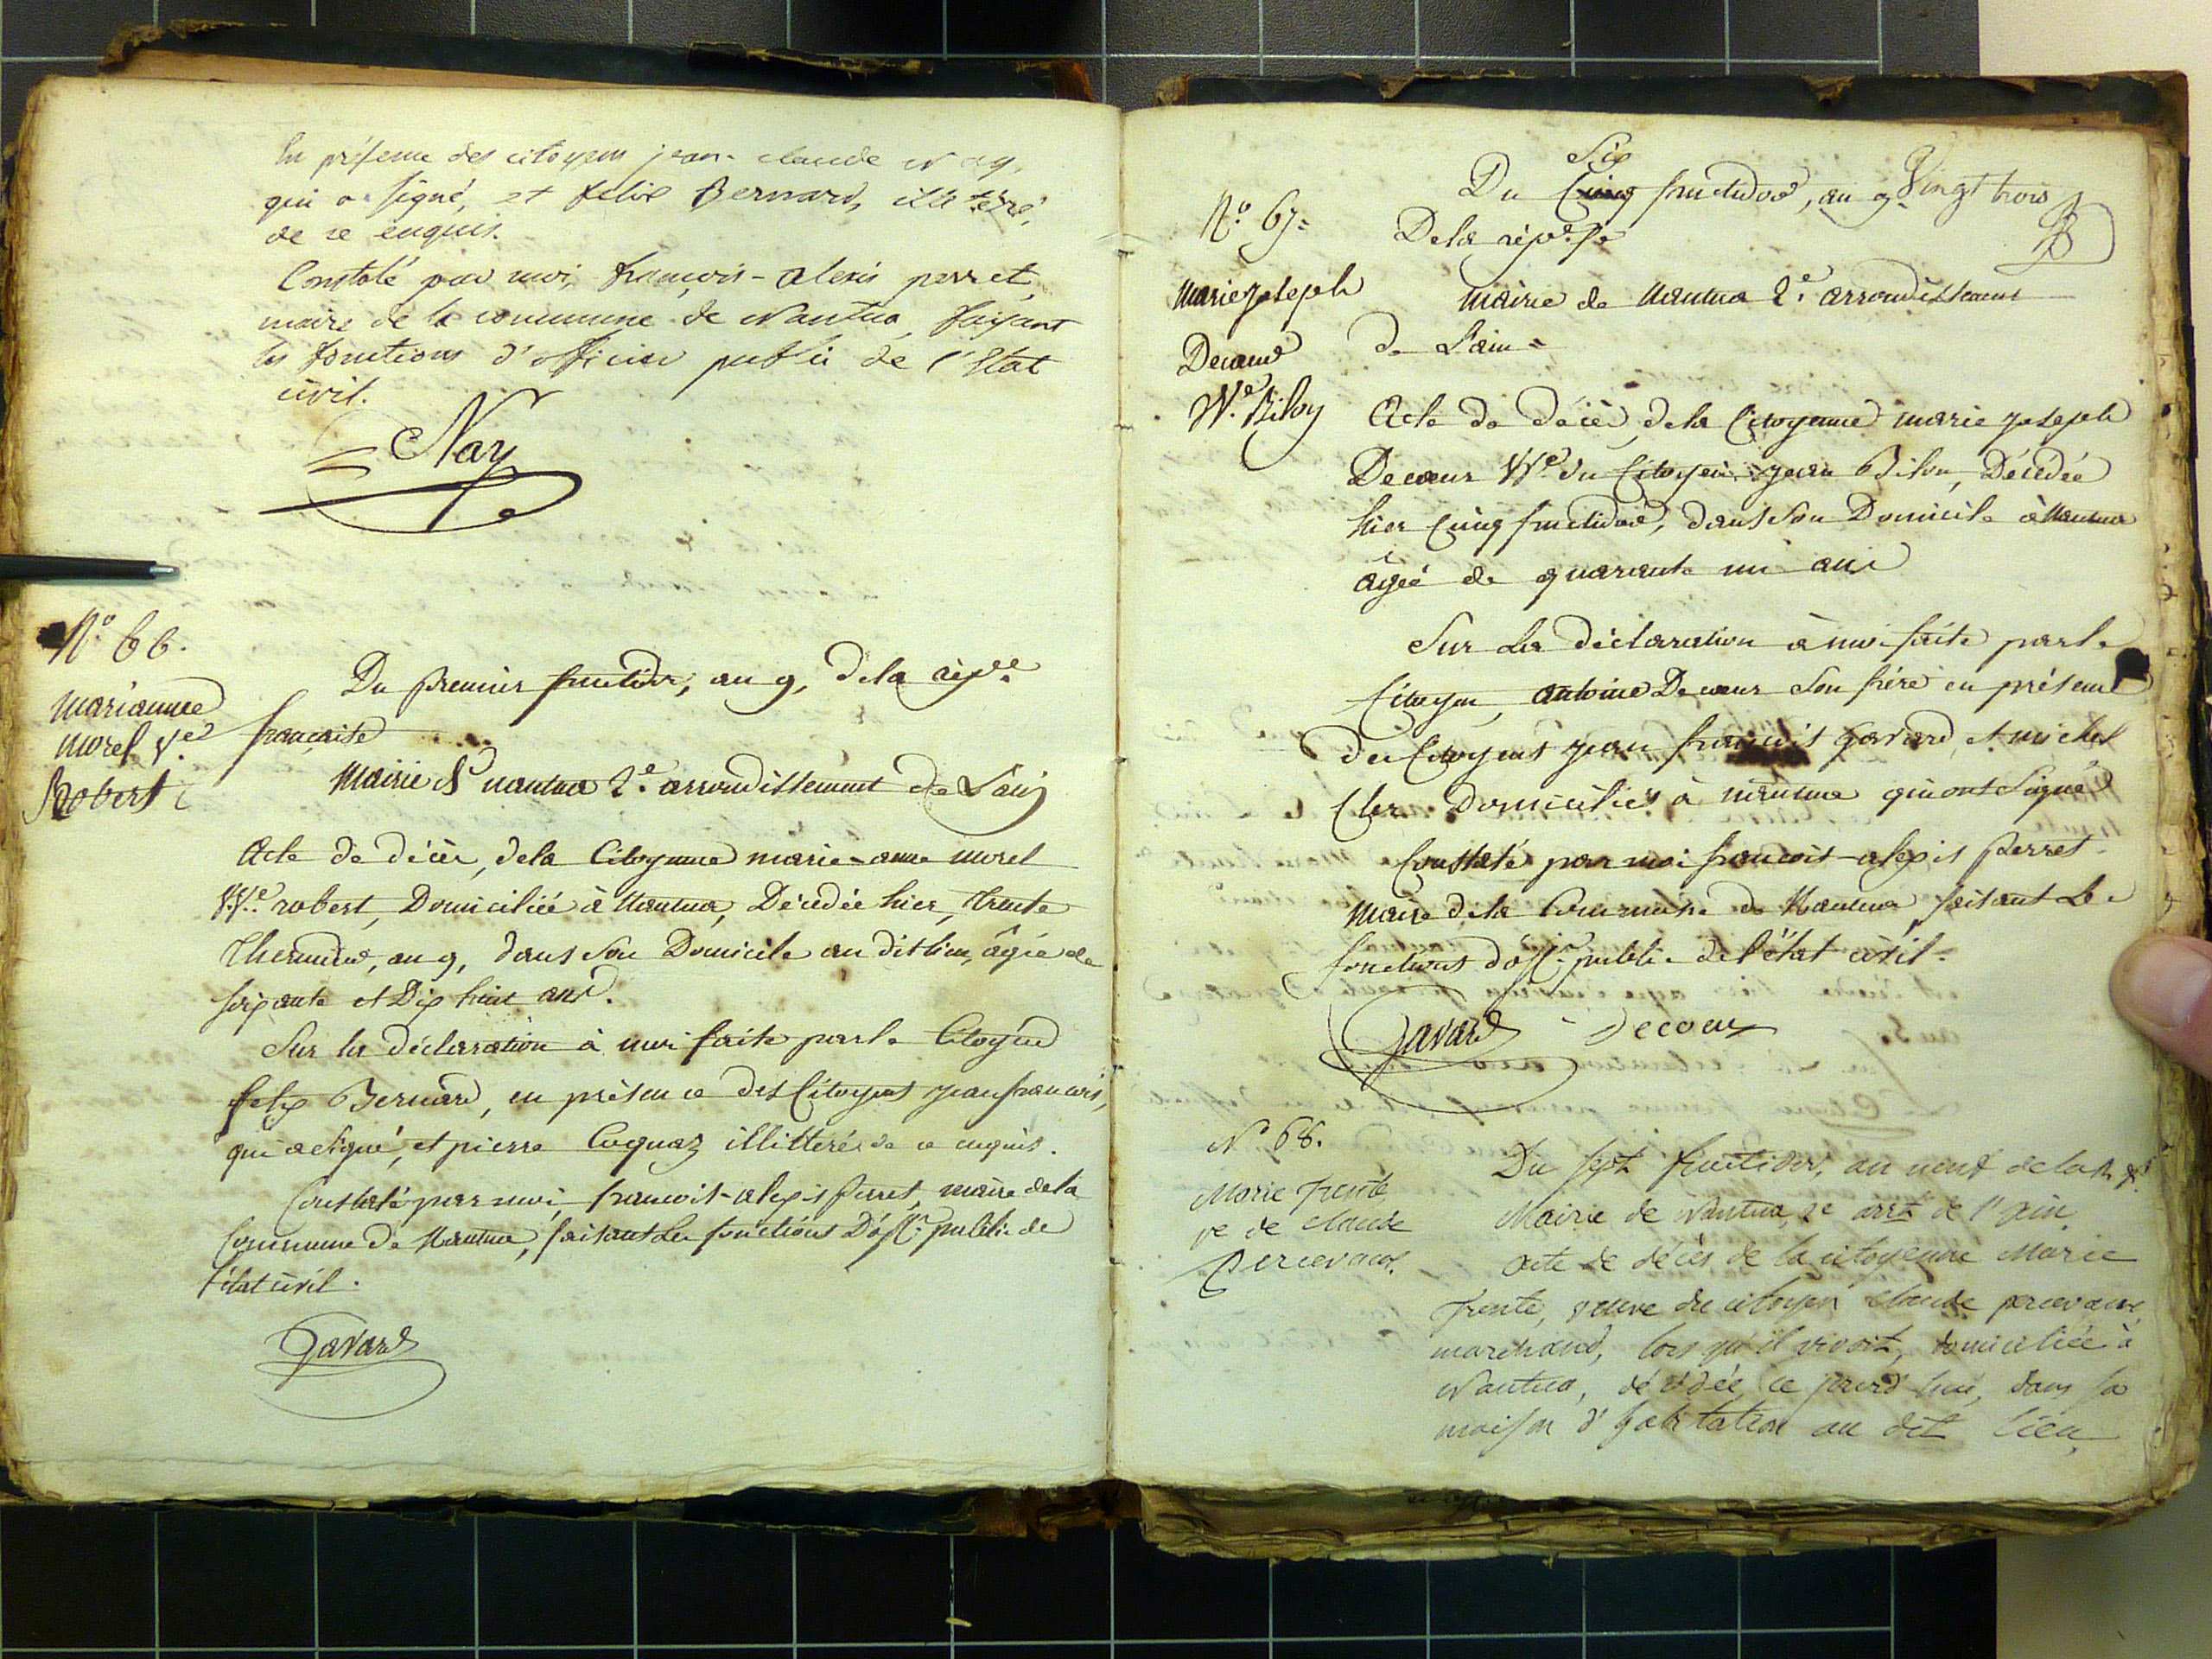 En présence des citoyens jean-claude Nay,
qui a signé, et felix Bernard, illitéré,
de ce enquis.
Constaté par moi, françois-alexis perret,
maire de la commune de Nantua, faisant
les fonctions d'officier public de l'Etat
civil.
Nay
N.º 66.
marianne
morel v.e
Robert
Du premier fructidor, an 9, dela rép.ue
française
Mairie de nantua 2.e arrondissement de L'ain
Acte de décès, dela Citoyenne marie-anne morel
V.ve robert, Domiciliée à Nantua, Décédée hier, trente
Thermidor, an 9, dans son Domicile au dit lieu, âgée de
soixante et Dix huit ans.
Sur la déclaration à moi faite par le Citoyen
felix Bernard, en présence des Citoyens jean françois,
qui a signé, et pierre Cuquaz illitteré de ce enquis.
Constaté par moi, francois-alexis Perret, maire dela
Commune de Nantua, faisant les fonctions D'off.er public de
l'état civil.
Gavard
Vingt trois
N.º 67=
Marie joseph
Decoeur
V.ve Bilon
Six
Du Cinq fructidor, an 9
Dela rép.e f.se
Mairie de Nantua 2.e arrondissement
de L'ain=
Acte de décès, dela Citoyenne marie joseph
Decoeur V.ve du Citoyen jean Bilon, Décédée
hier Cinq fructidor, dans son Domicile à Nantua
âgée de quarante un ans
Sur la déclaration à moi faite par le
Citoyen, antoine Decoeur son frère en présence
des Citoyens jean françois gavard, et michel
Cler Domiciliés à nantua qui ont signé
Constaté par moi francois-alexis Perret
Maire dela Commune de Nantua faisant les
fonctions d'off.er public de l'état civil=
Gavard Decoeur
N.º 68.
Marie trente,
ve de claude
Percevaux.
Du sept fructidor, an neuf de la R. f.
Mairie de Nantua, 2e arr.t de l'ain.
acte de décès de la citoyenne Marie
trente, veuve du citoyen claude percevaux
marchand, lors qu'il vivoit, domiciliée à
Nantua, décédée, ce jourd'hui, dans sa
maison d'habitation au dit lieu,